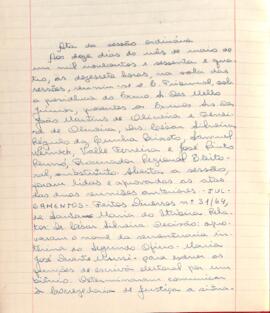 Ata da sessão ordinária
Aos doze dias do mês de maio de
um mil novecentos e sessenta e qua-
tro, às dezesseis horas, na sala das
sessões, reuniu-se o E. Tribunal, sob
a presidência do Exmo. Sr. Des. Mello
Júnior, presentes os Exmos. Srs. Drs.
João Martins de Oliveira e
de Oliveira, Drs. Cesar Silveira,
Régulo da Cunha Peixoto,
Valle Ferreira e José Paulo
Procurador Regional Eleito-
ral, substituto. Aberta a sessão,
foram lidas e aprovadas as atas
das duas reuniões anteriores - JUL-
GAMENTOS - Feitos Diversos nº 31/64,
de Santa Maria do Itabira. Rela-
tor Dr. Cesar Silveira. Decisão: apro-
varam o nome da serventuária in-
terina do Segundo Ofício - Maria
José Duarte - para exercer as
funções de escrivã eleitoral por um
biênio. Determinaram comunicar
à Corregedoria de Justiça a